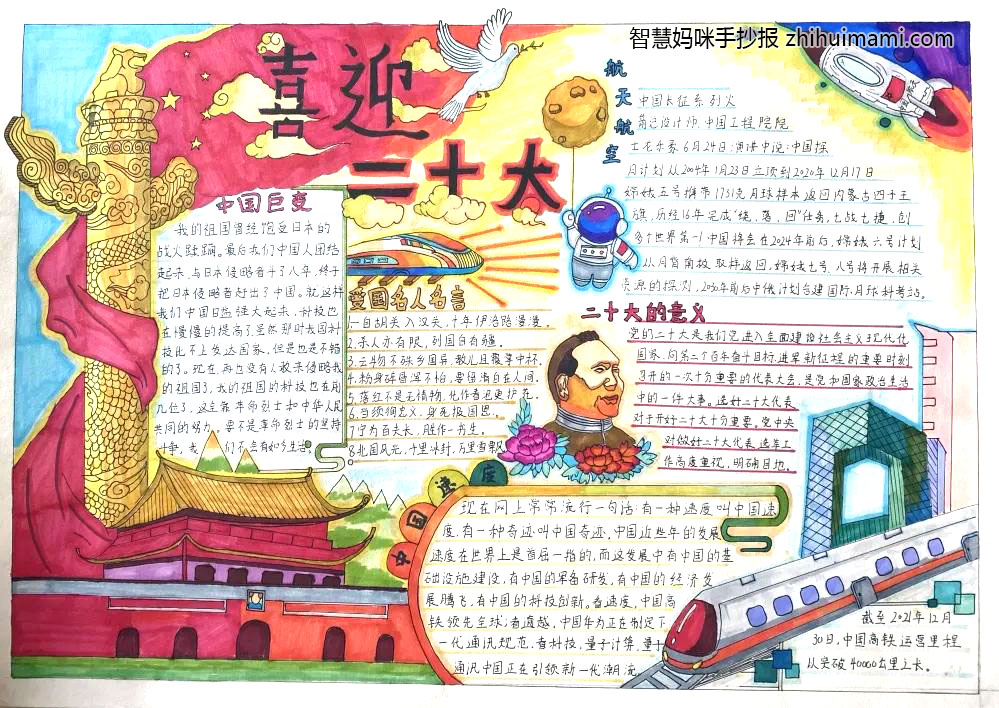 智慧妈咪手抄报 zhihuimami.com
喜迎
二十大
航天航空
中国长征系列火
箭总设计师、中国工程院院
士龙乐豪6月24日演讲中说:中国探
月计划从2004年1月23日立项到2020年12月17日
嫦娥五号携带1731克月球样本返回内蒙古四子王
旗,历经16年完成“绕,落,回”任务,七战七捷,创
多个世界第一!中国将会在2024年前后,嫦娥六号计划
从月背南极取样返回,嫦娥七号、八号将开展相关
资源的探测,2030年前后中俄计划合建国际月球科考站。
中国巨变
我的祖国曾经饱受日本的
战火蹂躏。最后我们中国人团结
起来,与日本侵略者斗了八年,终于
把日本侵略者赶出了中国。就这样
我们中国日益强大起来,科技也
在慢慢的提高了虽然那时我国科
技比不上发达国家,但是也是不错
的了。现在,再也没有人敢来侵略我
的祖国了,我的祖国的科技也在前
几位了,这全靠革命烈士和中华人民
共同的努力。要不是革命烈士的坚持
斗争,我们不会有如今生活
爱国名人名言
1.一自胡关入汉关,十年伊洛路漫漫。
2.杀人亦有限,列国自有疆。
3.云物不殊乡国异,教儿且覆掌中杯。
4.粉身碎骨浑不怕,要留清白在人间。
5.落红不是无情物,化作春泥更护花。
6.当须徇忠义,身死报国恩。
7.宁为百夫长,胜作一书生。
8.北国风光,千里冰封,万里雪飘。
二十大的意义
党的二十大是我们党进入全面建设社会主义现代化
国家、向第二个百年奋斗目标进军新征程的重要时刻
召开的一次十分重要的代表大会,是党和国家政治生活
中的一件大事。选好二十大代表,
对于开好二十大十分重要。党中央
对做好二十大代表选举工
作高度重视,明确目地。
中国速度
现在网上常常流行一句话:有一种速度叫中国速
度,有一种奇迹叫中国奇迹,中国近些年的发展
速度在世界上是首屈一指的,而这发展中有中国的基
础设施建设,有中国的军备研发,有中国的经济发
展腾飞,有中国的科技创新。看速度,中国高
铁领先全球;看通越,中国华为正在制定下
一代通讯规范,看科技,量子计算,量子
通讯中国正在引领新一代潮流
截至2021年12月
30日,中国高铁运营里程
从突破40000公里之长。